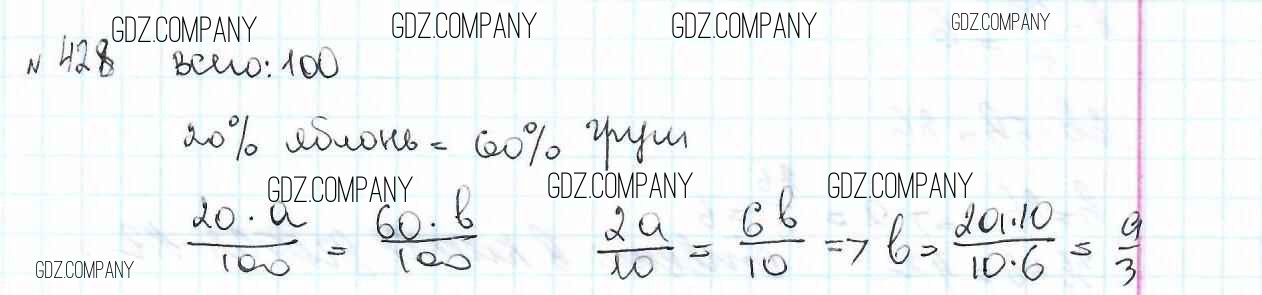 GDZ.COMPANY GDZ.COMPANY GDZ.COMPANY GDZ.COMPANY
№ 428 всего: 100
20% яблонь = 60% груш
GDZ.COMPANY GDZ.COMPANY GDZ.COMPANY
20·a/100 = 60·b/100 2a/10 = 6b/10 => b = 2a·10/10·6 = a/3
GDZ.COMPANY